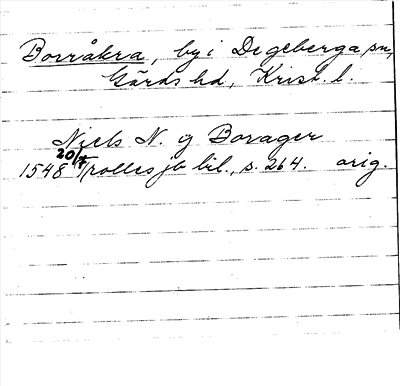 Borråkra, by i Degeberga sn,
Gärds hd, Krist. l.
Niels N. g Borager
1548 20/7 Trolles jb bil., s. 264. orig.